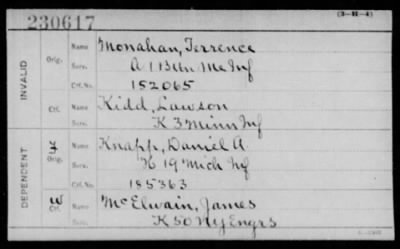 230617
(3-H-4)
INVALID
Orig.
Name Monahan, Terrence
Serv. A 1 Bttn Me Inf
Ctf. No. 152065
Ctf.
Name Kidd, Lawson
Serv. K 3 Minn Inf
DEPENDENT
Orig.
Name Knapp, Daniel A.
Serv. H 19 Mich Inf
Ctf. No. 185363
W
Ctf.
Name McElwain, James
Serv. K 50 Ny Engrs